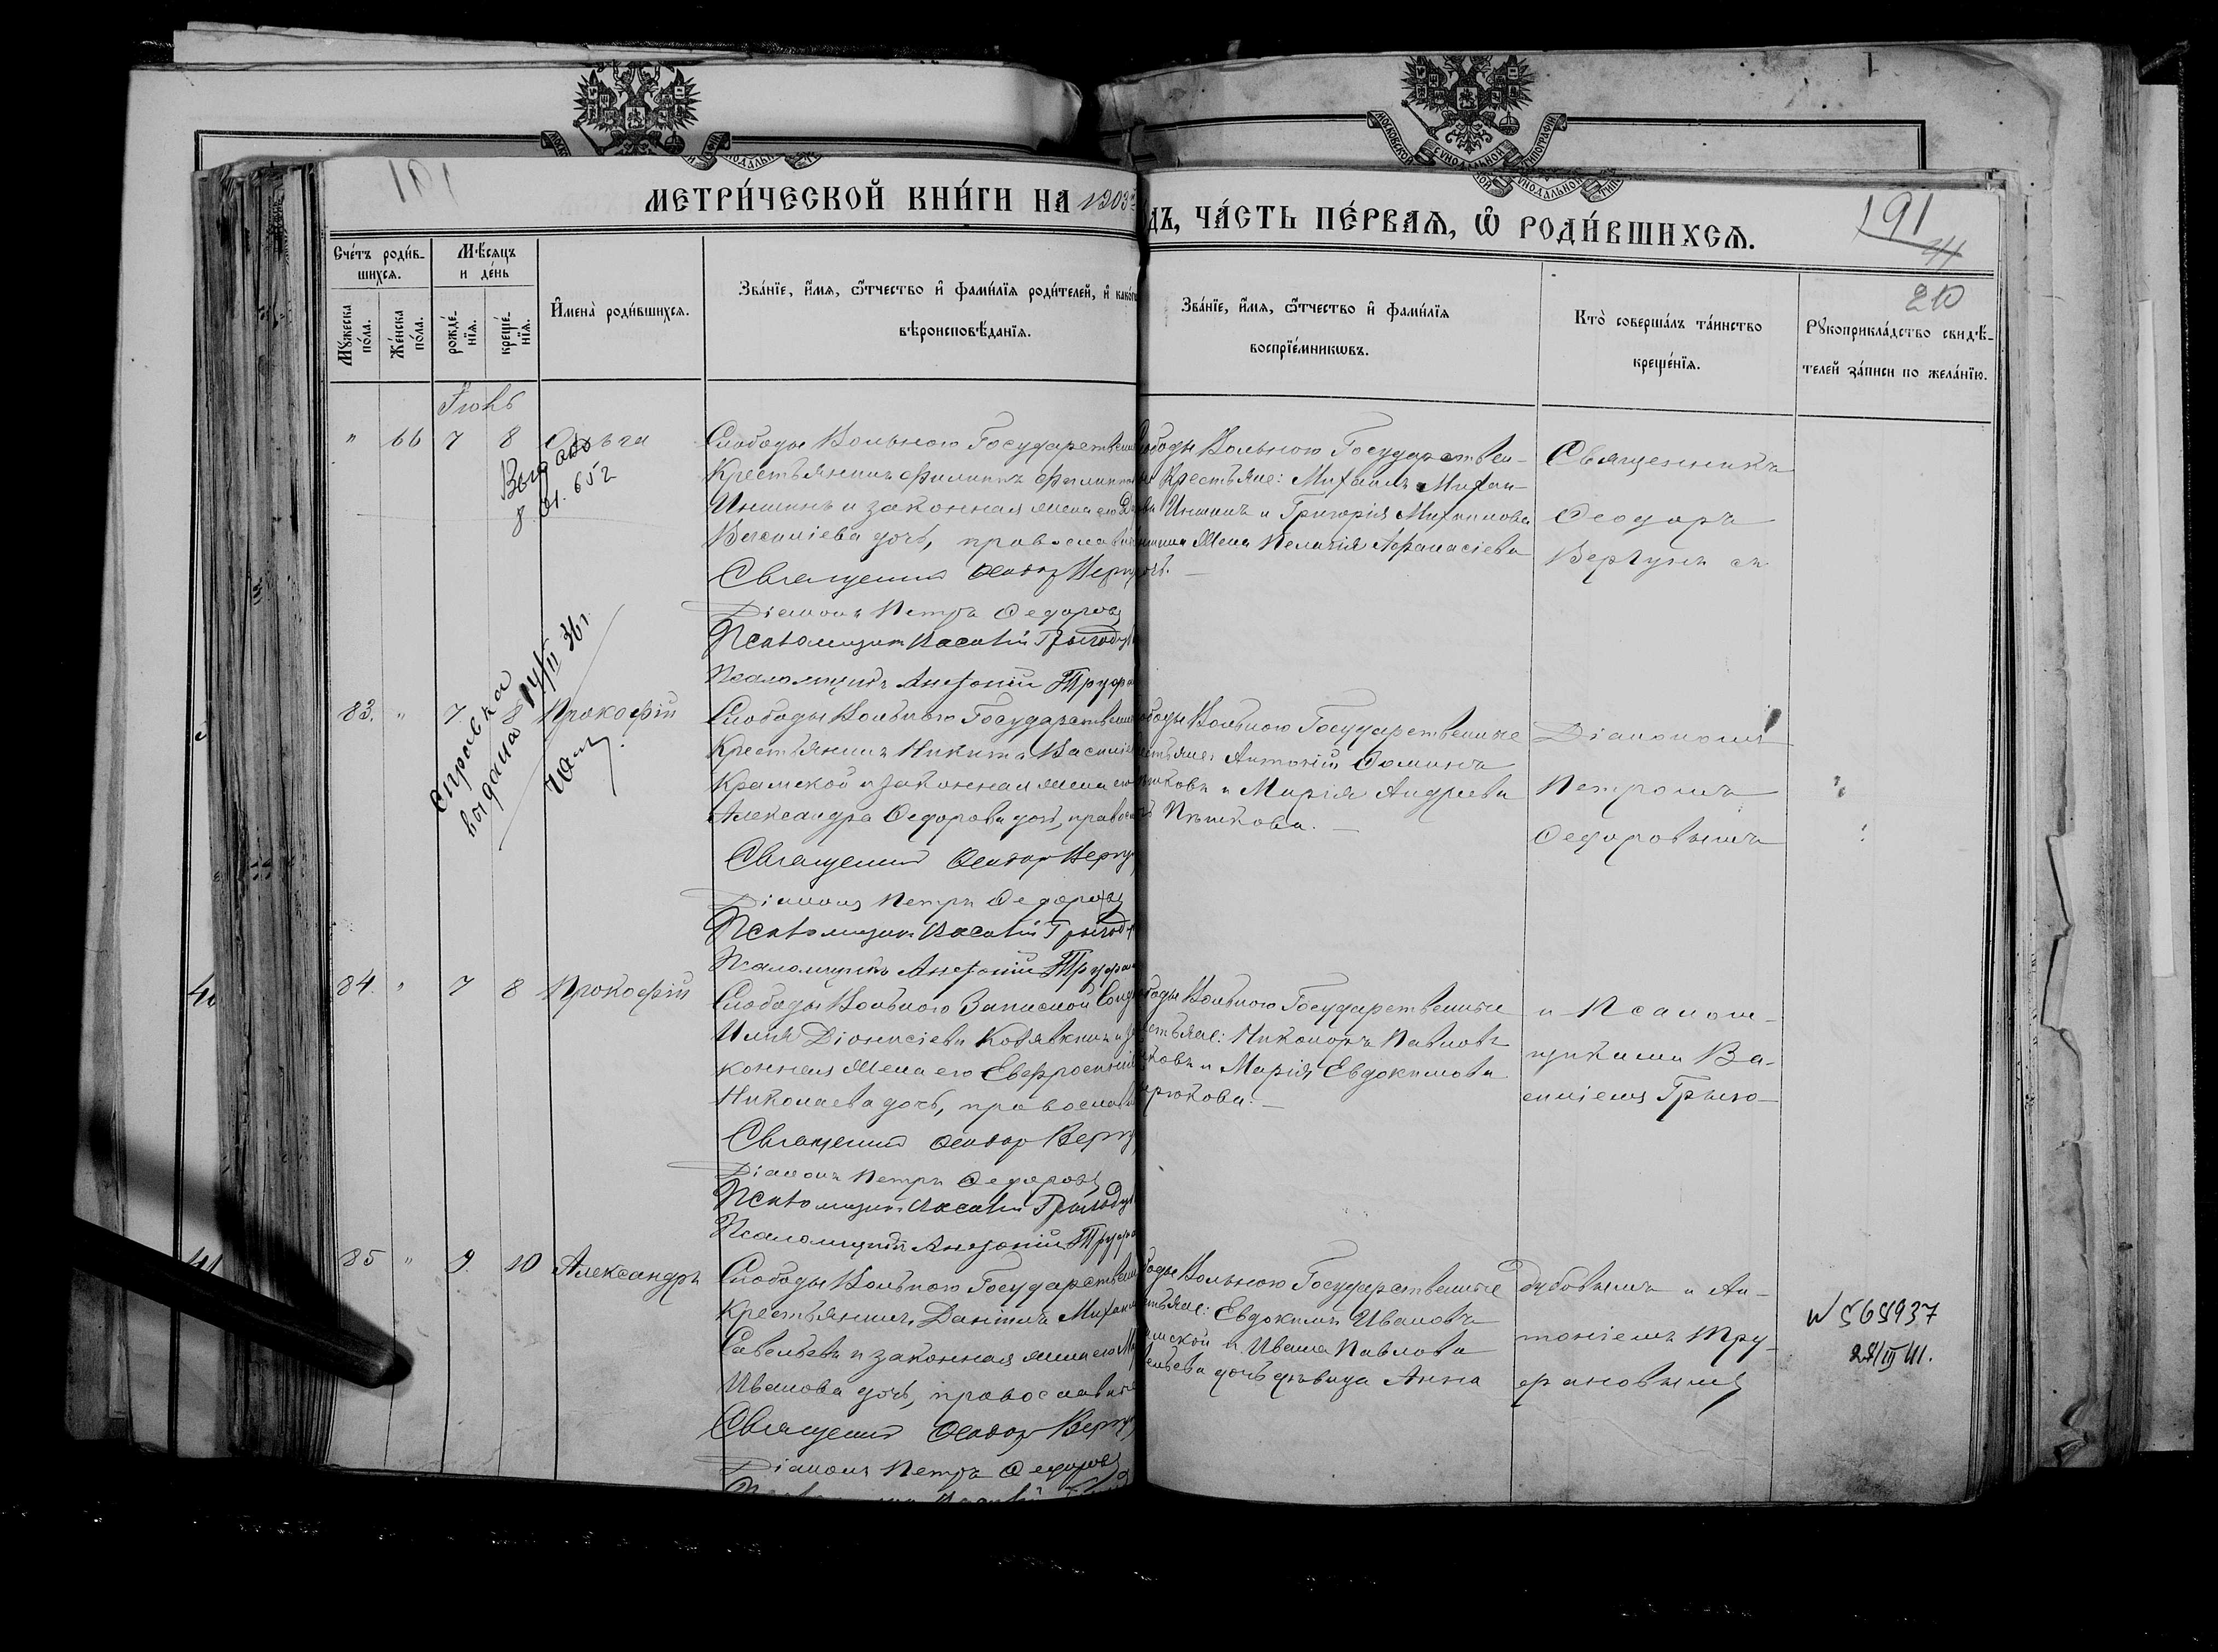 191
МЕТРИ́ЧЕСКОЙ КНИ́ГИ НА 1903й
ДЪ, ЧА́СТЬ ПЕ́РВАЯ, Ѡ РОДИ́ВШИХСЯ.
191
210
МОСКОВСКОЙ СѴНОДАЛЬНОЙ ТИПОГРАФІИ
Сче́тъ роди́в-
шихся.
Мѣ́сяцъ
и де́нь
Мꙋ́жеска
по́ла.
Же́нска
по́ла.
рожде́-
нїя.
креще́-
нїя.
И҆мена̀ роди́вшихся.
Зва́нїе, и҆́мя, ѻ҆́тчество и҆ фами́лїя роди́телей, и҆ како́гѡ
вѣроисповѣ́данїя.
Зва́нїе, и҆́мя, ѻ҆́тчество и҆ фами́лїя
воспрїе́мникѡвъ.
Кто̀ соверша́лъ та́инство
креще́нїя.
Рꙋкоприкла́дство свидѣ́-
телей за́писи по жела́нїю.
Іюнь
" 66 7 8 Ольга
Выдано
Слободы Вольного Государствен
Крестьянинъ Филиппъ Филиппов
Иншинъ и законная жена его
Василіева дочь, православн
Священник Феодор Верг
Діаконъ Петръ Федоров
Псаломщик Василий Грыгоб
Псаломщикъ Анфоній Труфа
слободы Вольного Государствен-
ные Крестьяне: Михаилъ Михаи-
Иншинъ и Григорія Михаилова
жена Пелагія Афанасіева
дочь.
Священникъ
Феодоръ
Вергунъ съ
справка
выдана 14/II 36г.
83. " 7 8 Прокофій
Слободы Вольного Государствен
Крестьянинъ Никита Василіе
Крамской и законная жена его
Александра Федорова дочь, правос
Священник Феодор Верг
Діаконъ Петръ Федоров
Псаломщик Василий Грыгоб
Псаломщикъ Анфоній Труфа
слободы Вольного Государственные
крестьяне: Антоній Фоминъ
и Марія Андреева
Пѣшкова.
Діакономъ
Петромъ
Федоровымъ
84. " 7 8 Прокофій
Слободы Вольного Запасной Солд
Илія Діонисіевъ Ковявкинъ и за
конная жена его Евфросинія
Николаева дочь, православ
Священник Феодор Верг
Діаконъ Петръ Федоров
Псаломщик Василий Грыгоб
Псаломщикъ Анфоній Труфа
слободы Вольного Государственные
крестьяне: Никаноръ Павловъ
и Марія Евдокимова
и Псалом-
щиками Ва-
силіемъ Грыго-
85 " 9 10 Александръ
Слободы Вольного Государствен
Крестьянинъ Даніилъ Михаил
Савельевъ и законная жена его
Иванова дочь, православные
Священник Феодор Верг
Діаконъ Петръ Федоров
слободы Вольного Государственные
крестьяне: Евдокимъ Ивановъ
Крамской и Ивана Павлова
Савельева дочь дѣвица Анна
бубовымъ и Ан-
тоніемъ Тру-
фановымъ
№ 565937
28/III 41.